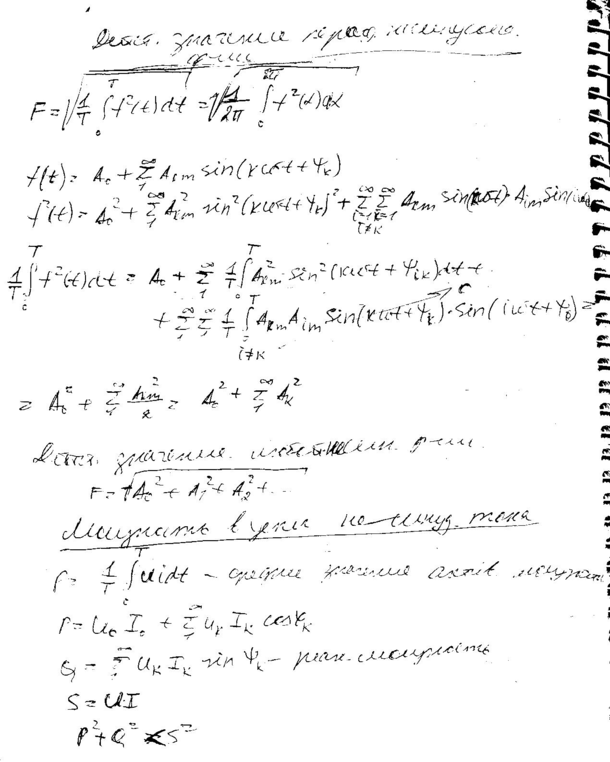 Действ. значение период. несинусоид.
ф-ции
F = √(1/T ∫₀ᵀ f²(t)dt) = √(1/2π ∫₀²π f²(α)dα)
f(t) = A₀ + Σ₁^∞ Aₖₘ sin(kωt + ψₖ)
f²(t) = A₀² + Σ₁^∞ Aₖₘ² sin²(kωt + ψₖ)² + Σ_{i=1}^∞ Σ_{k=1}^∞ _{i≠k} Aₖₘ sin(kωt) · Aᵢₘ sin(iωt
1/T ∫₀ᵀ f²(t)dt = A₀ + Σ₁^∞ 1/T ∫₀ᵀ Aₖₘ² sin²(kωt + ψᵢₖ)dt +
+ Σ₁ Σ₁ 1/T ∫₀ᵀ _{i≠k} Aₖₘ Aᵢₘ sin(kωt + ψₖ) · sin(iωt + ψᵢ) = 0
= A₀² + Σ₁^∞ Aₖₘ²/2 = A₀² + Σ₁^∞ Aₖ²
Действ. значение ф-ции
F = √(A₀² + A₁² + A₂² + ...)
Мощность в цепи не синус. тока
P = 1/T ∫₀ᵀ uidt – среднее значение актив мощности
P = U₀ I₀ + Σ₁^∞ Uₖ Iₖ cosφₖ
Q = Σ₁^∞ Uₖ Iₖ sin Ψₖ – реак. мощность
S = UI
P² + Q² < S²